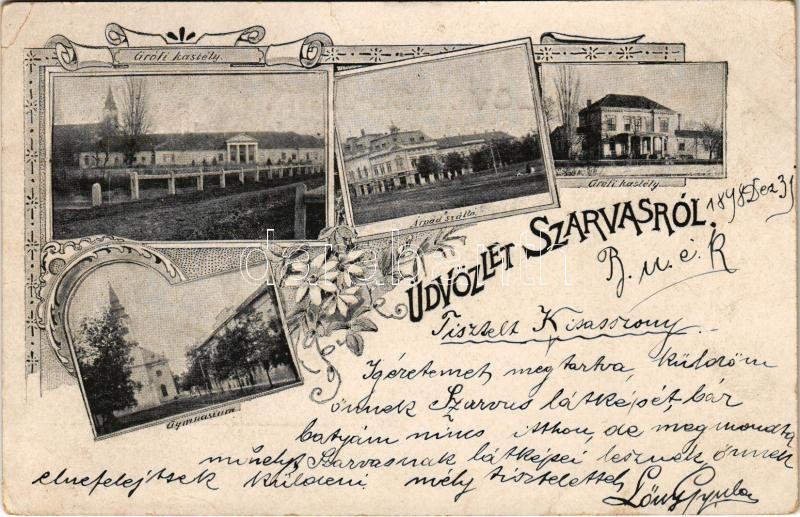 Grófi kastély.
Árpád szálló.
Grófi kastély.
Gymnasium
ÜDVÖZLET SZARVASRÓL.
1898 Dez 31
B. u. é. k
Tisztelt Kisasszony
Igéretemet megtartva, küldöm
önnek Szarvas látképét, bár
batyám nincs itthon, de megmondta
Szarvasnak látképei lesznek önnek
elnefelejtsek küldeni mély tisztelettel
Gyula